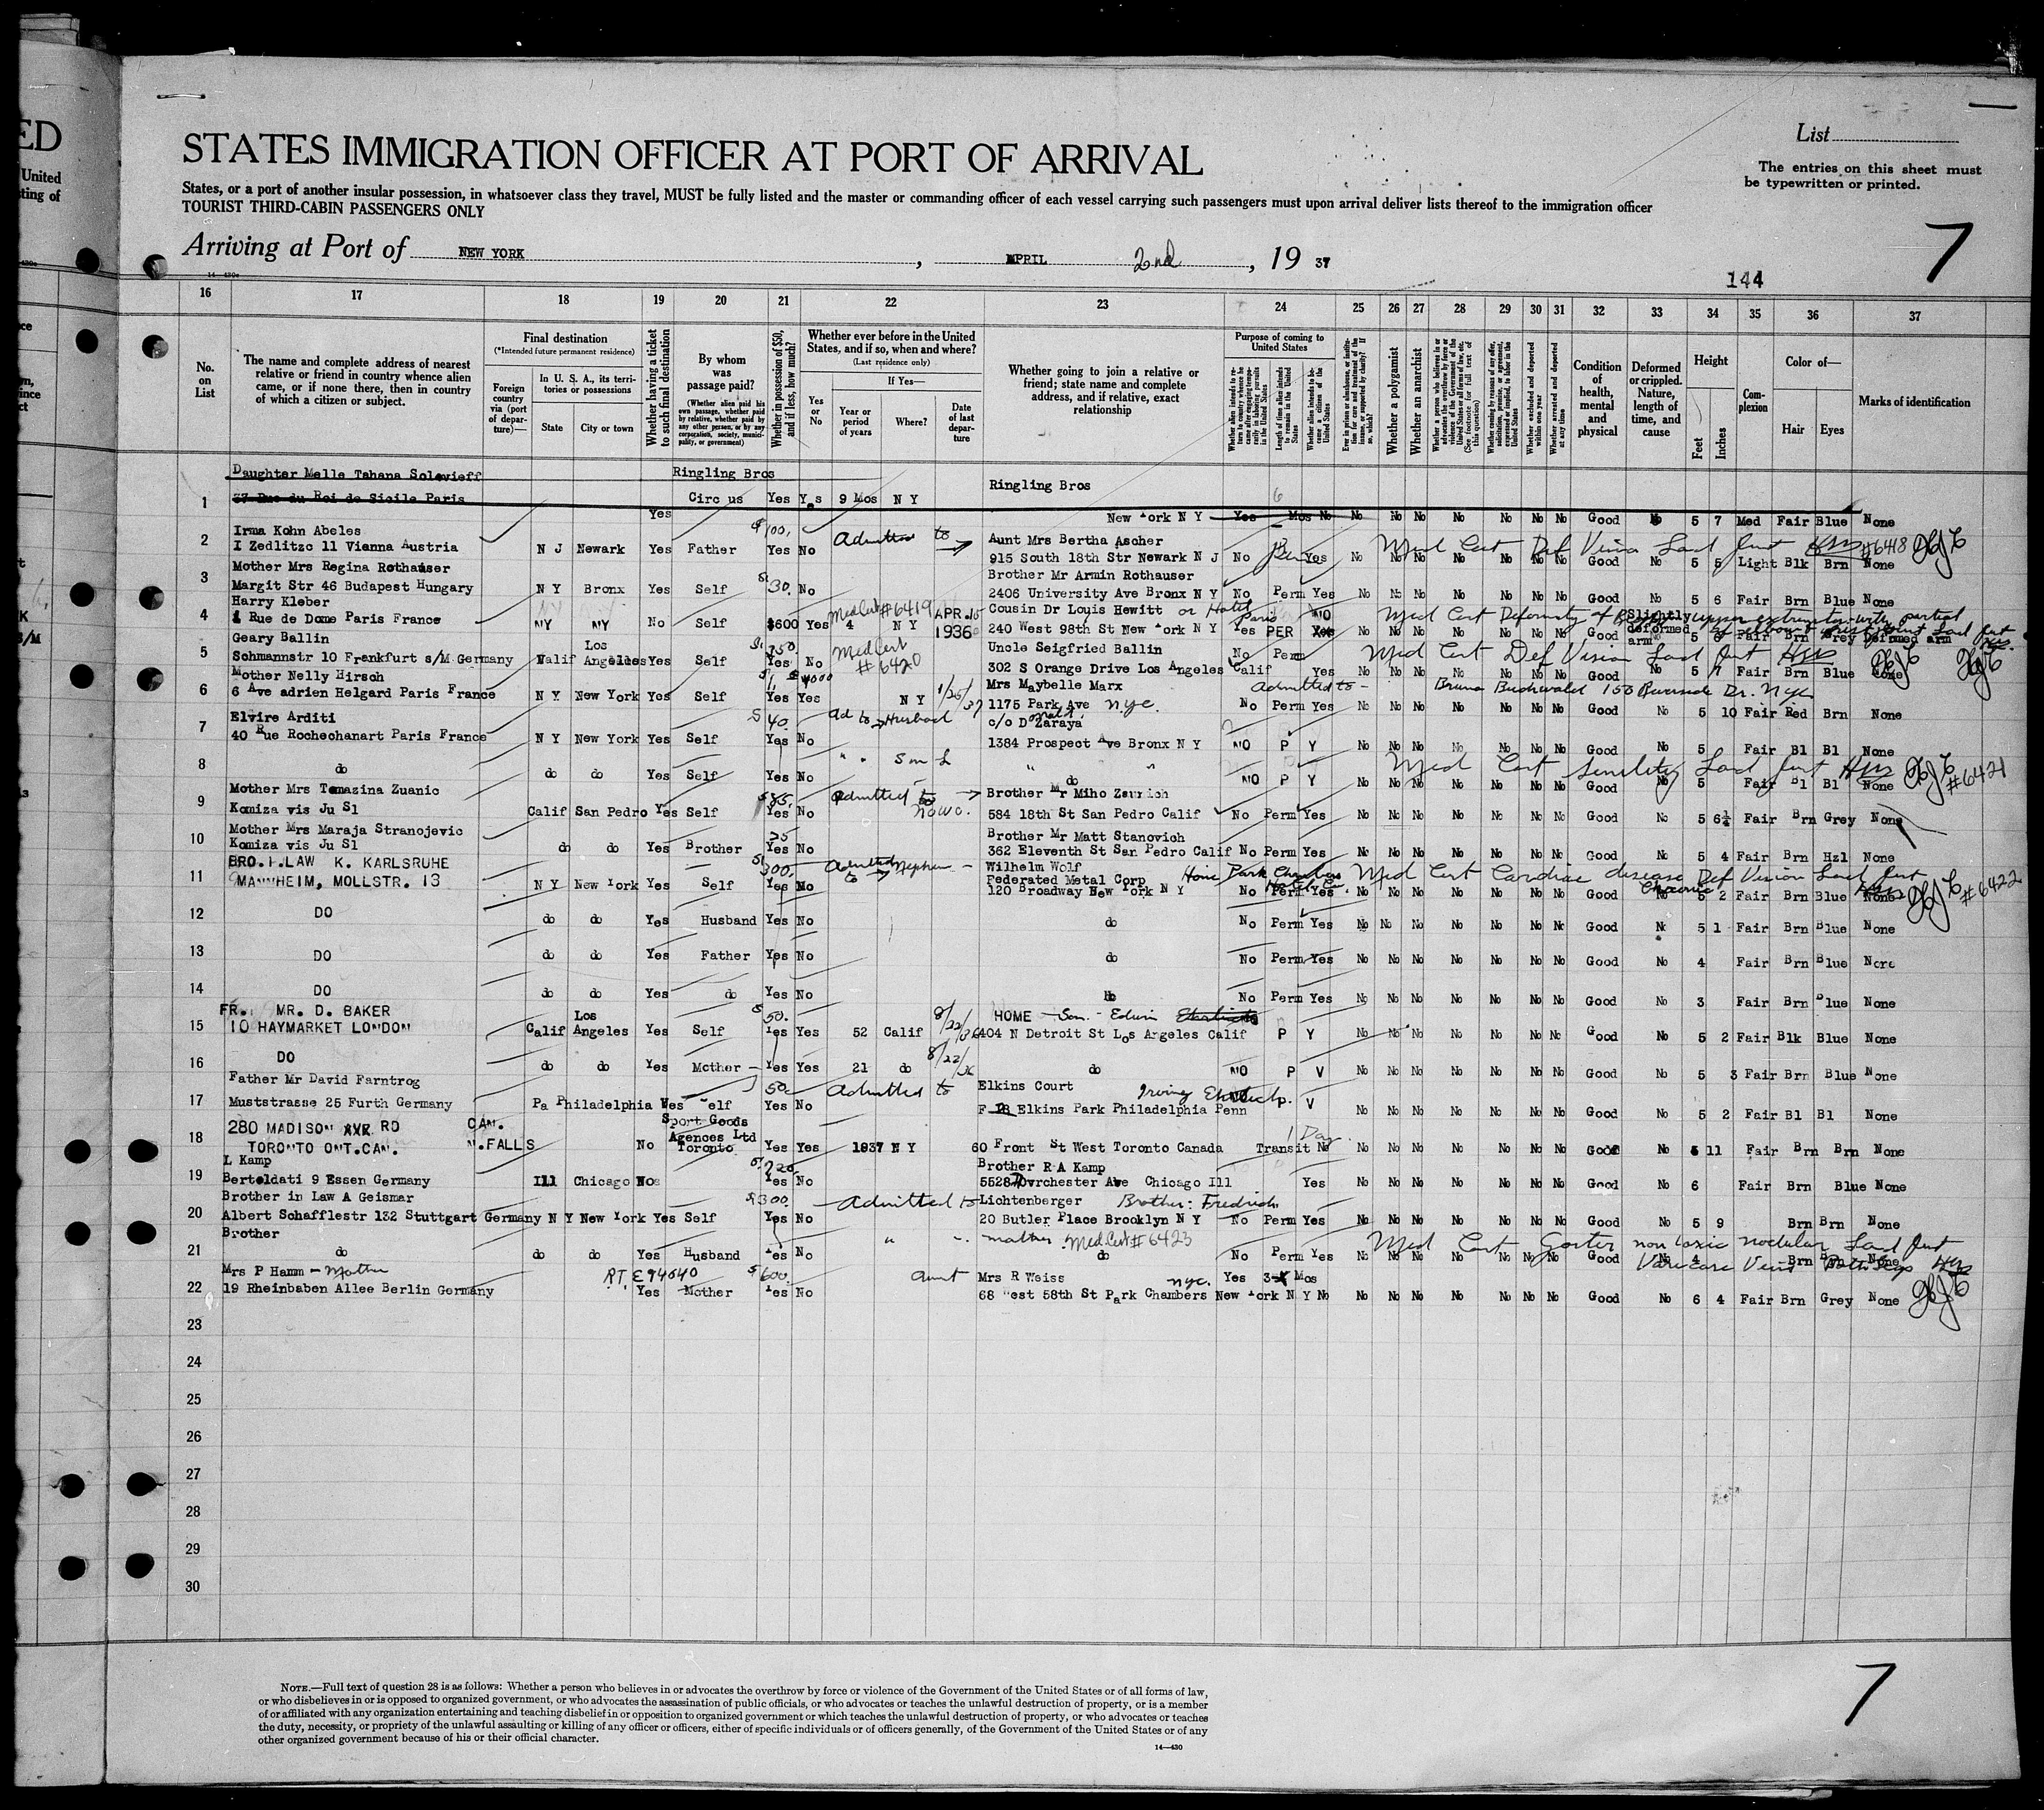 ED
United
sting of
List
STATES IMMIGRATION OFFICER AT PORT OF ARRIVAL
The entries on this sheet must
be typewritten or printed.
States, or a port of another insular possession, in whatsoever class they travel, MUST be fully listed and the master or commanding officer of each vessel carrying such passengers must upon arrival deliver lists thereof to the immigration officer
TOURIST THIRD-CABIN PASSENGERS ONLY
7
Arriving at Port of NEW YORK, APRIL 2nd, 19 37
144
16 17 18 19 20 21 22 23 24 25 26 27 28 29 30 31 32 33 34 35 36 37
No. on List
The name and complete address of nearest relative or friend in country whence alien came, or if none there, then in country of which a citizen or subject.
Final destination
(*Intended future permanent residence)
Foreign country via (port of departure)—
In U. S. A., its territories or possessions
State
City or town
Whether having a ticket to such final destination
By whom was passage paid?
(Whether alien paid his own passage, whether paid by relative, whether paid by any other person, or by any corporation, society, municipality, or government)
Whether in possession of $50, and if less, how much?
Whether ever before in the United States, and if so, when and where?
(Last residence only)
Yes or No
If Yes—
Year or period of years
Where?
Date of last departure
Whether going to join a relative or friend; state name and complete address, and if relative, exact relationship
Purpose of coming to United States
Length of time alien intends to remain in the United States
Whether alien intends to become a citizen of the United States
Whether a polygamist
Whether an anarchist
Whether excluded and deported within one year
Whether arrested and deported at any time
Condition of health, mental and physical
Deformed or crippled. Nature, length of time, and cause
Height
Feet
Inches
Complexion
Color of—
Hair
Eyes
Marks of identification
Daughter Melle Tahana Solovieff Ringling Bros
1 37 Rue du Roi de Sicile Paris Yes Circus Yes Yes 9 Mos N Y Ringling Bros New York N Y Yes 6 Mos No No No No No No No No Good No 5 7 Med Fair Blue None
Irma Kohn Abeles $100. Admitted to Aunt Mrs Bertha Ascher Med Cert Def Vision Last fint #6418
2 I Zedlitzc 11 Vianna Austria N J Newark Yes Father Yes No 915 South 18th Str Newark N J No Per Yes No No No No No No No Good No 5 5 Light Blk Brn None
Mother Mrs Regina Rothauser Brother Mr Armin Rothauser
3 Margit Str 46 Budapest Hungary N Y Bronx Yes Self 30. No 2406 University Ave Bronx N Y No Perm Yes No No No No No No No Good No 5 6 Fair Brn Blue None
Harry Kleber Med Cert #6419 Cousin Dr Louis Hewitt or Hotel Paris Med Cert Deformity of upper extremity with partial
4 1 Rue de Dome Paris France NY NY No Self $600 Yes 4 N Y APR. 1936 240 West 98th St New York N Y Yes PER NO No No No No No No No Good Slightly deformed arm 5 6 Fair Brn Grey Deformed arm
Geary Ballin Los 750. Med Cert #6420 Uncle Seigfried Ballin Med Cert Def Vision
5 Schmannstr 10 Frankfurt s/M Germany Calif Angeles Yes Self Yes No 302 S Orange Drive Los Angeles Calif No Perm Yes No No No No No No No Good No 5 7 Fair Brn Blue None
Mother Nelly Hirsch Mrs Maybelle Marx Admitted to - Bruno Buchwald 150 Riverside Dr. NYC
6 6 Ave adrien Helgard Paris France N Y New York Yes Self Yes Yes N Y 1/25/37 1175 Park Ave NYC. No Perm Yes No No No No No No No Good No 5 10 Fair Red Brn None
Elvire Arditi 40. Ad to Husband c/o D Zaraya
7 40 Rue Rochechanart Paris France N Y New York Yes Self Yes No 1384 Prospect Ave Bronx N Y NO P Y No No No No No No No Good No 5 Fair Bl Bl None
8 do do do Yes Self Yes No do NO P Y No No No No No No No Good No 5 Fair Bl Bl None
Med Cert Senility #6421
Mother Mrs Tomazina Zuanic 85. Admitted to Brother Mr Miho Zaurich
9 Komiza vis Ju Sl Calif San Pedro Yes Self Yes No 584 18th St San Pedro Calif No Perm Yes No No No No No No No Good No 5 6¼ Fair Brn Grey None
Mother Mrs Maraja Stranojevic 75 Brother Mr Matt Stanovich
10 Komiza vis Ju Sl do do Yes Brother Yes No 362 Eleventh St San Pedro Calif No Perm Yes No No No No No No No Good No 5 4 Fair Brn Hzl None
BRO.I.LAW K. KARLSRUHE 300. Admitted to Nephew - Wilhelm Wolf Med Cert Cardiac disease Def Vision
11 MANNHEIM, MOLLSTR. 13 N Y New York Yes Self Yes No Federated Metal Corp 120 Broadway New York N Y No Perm Yes No No No No No No No Good Chronic No 5 2 Fair Brn Blue None #6422
12 DO do do Yes Husband Yes No do No Perm Yes No No No No No No No Good No 5 1 Fair Brn Blue None
13 DO do do Yes Father Yes No do No Perm Yes No No No No No No No Good No 4 Fair Brn Blue None
14 DO do do Yes do Yes No Do No Perm Yes No No No No No No No Good No 3 Fair Brn Blue None
FR. MR. D. BAKER Los 50. HOME Son - Edwin
15 10 HAYMARKET LONDON Calif Angeles Yes Self Yes Yes 52 Calif 8/22/36 404 N Detroit St Los Angeles Calif P Y No No No No No No No Good No 5 2 Fair Blk Blue None
16 DO do do Yes Mother Yes Yes 21 do 8/22/36 do NO P V No No No No No No No Good No 5 3 Fair Brn Blue None
Father Mr David Farntrog 50. Admitted to Elkins Court Irving
17 Muststrasse 25 Furth Germany Pa Philadelphia Yes Self Yes No Elkins Park Philadelphia Penn P V No No No No No No No Good No 5 2 Fair Bl Bl None
280 MADISON AVE RD CAN. Sport Goods Agences Ltd 1 Day
18 TORONTO ONT.CAN. N.FALLS No Toronto Yes Yes 1937 N Y 60 Front St West Toronto Canada Transit No No No No No No No No Good No 5 11 Fair Brn Brn None
L Kamp 220. Brother R A Kamp
19 Bertoldati 9 Essen Germany Ill Chicago No Yes No 5528 Dorchester Ave Chicago Ill Yes No No No No No No No Good No 6 Fair Brn Blue None
Brother in Law A Geismar $300. Admitted to Lichtenberger Brother: Fredrich
20 Albert Schafflestr 132 Stuttgart Germany N Y New York Yes Self Yes No 20 Butler Place Brooklyn N Y No Perm Yes No No No No No No No Good No 5 9 Brn Brn None
Brother mother Med.Cert #6423 Med Cert Goiter non toxic nodular
21 do do do Yes Husband Yes No do No Perm Yes No No No No No No No Good No 4 Brn Brn None
Varicose Veins Both legs
Mrs P Hamm - Mother RT. E 94640 600. Aunt Mrs R Weiss nyc. Yes 3 Mos
22 19 Rheinbaben Allee Berlin Germany Yes Mother Yes No 68 West 58th St Park Chambers New York N Y No No No No No No No No Good No 6 4 Fair Brn Grey None
23
24
25
26
27
28
29
30
NOTE.—Full text of question 28 is as follows: Whether a person who believes in or advocates the overthrow by force or violence of the Government of the United States or of all forms of law,
or who disbelieves in or is opposed to organized government, or who advocates the assassination of public officials, or who advocates or teaches the unlawful destruction of property, or is a member
of or affiliated with any organization entertaining and teaching disbelief in or opposition to organized government or which teaches the unlawful destruction of property, or who advocates or teaches
the duty, necessity, or propriety of the unlawful assaulting or killing of any officer or officers, either of specific individuals or of officers generally, of the Government of the United States or of any
other organized government because of his or their official character.
14—430
7